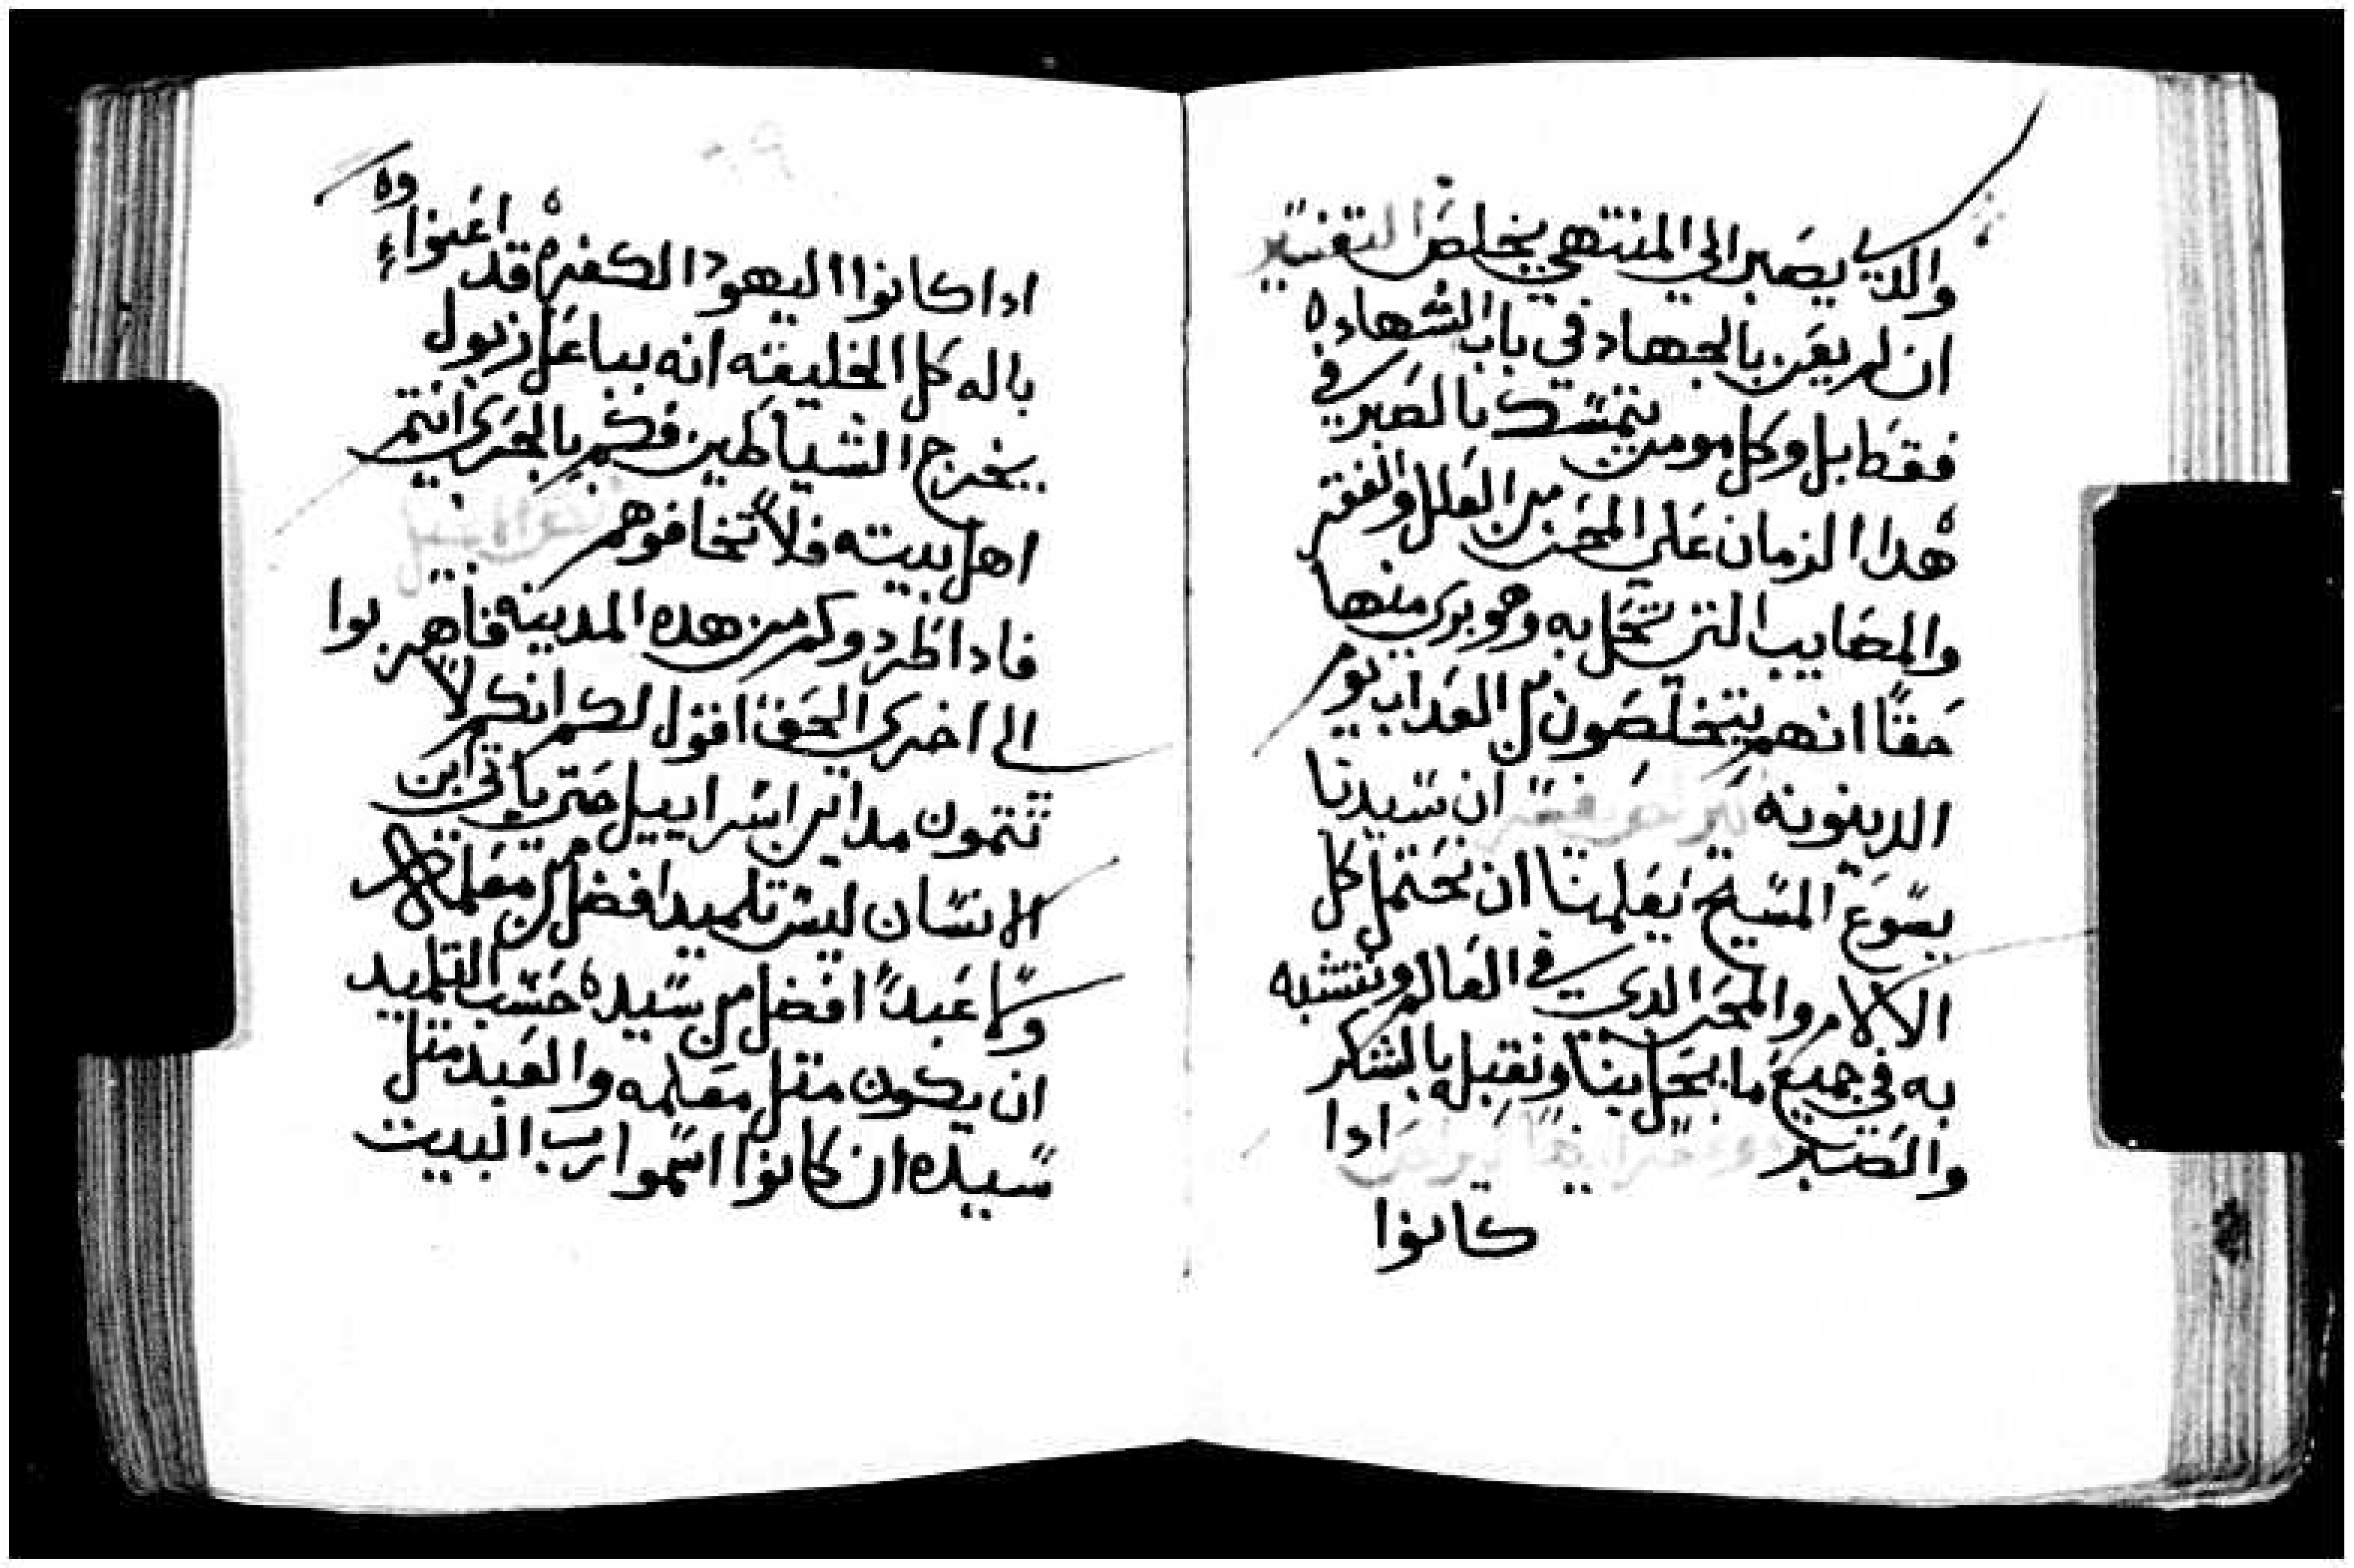 والدي يصبر الى المنتهى يخلص التفسير
ان لم يعن بالجهاد في باب الشهاده
فقط بل وكل مومن يتمسك بالصبر في
هدا الزمان على المحن من العلل والفقر
والمصايب التي تحل به وهو بري منها
حقًا انهم يتخلصون من العداب يوم
الدينونه ان سيدنا
يسوع المسيح يعلمنا ان نحتمل كل
الالام والمحن الدي في العالم ونتشبه
به في جميع ما يحل بنا ونقبل بالشكر
والصبر ادا
كانوا
٢٩
ادا كانوا اليهود الكفره قد
باله كل الخليقه انه بباعل زبول
يخرج الشياطين فكم بالحري انتم
اهل بيته فلا تخافوهم
فادا طردوكم من هده المدينه فاهربوا
الى اخرى الحق اقول لكم انكم لا
تتمون مداين اسراييل حتى ياتي ابن
الانسان ليس تلميد افضل من معلمه
ولا عبدًا افضل من سيده حسب التلميد
ان يكون متل معلمه والعبد متل
سيده ان كانوا اسموا رب البيت